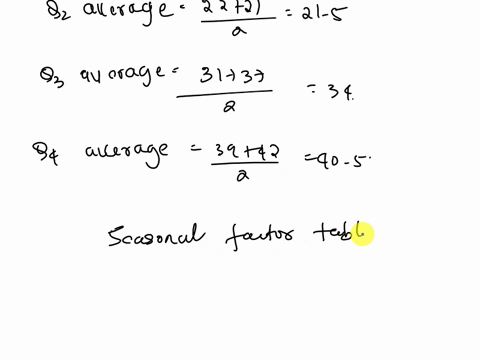 Q2 average = 22+21 / 2 = 21-5
Q3 average = 31+37 / 2 = 34.
Q4 average = 39+42 / 2 = 40-5.
Seasonal factor tabl